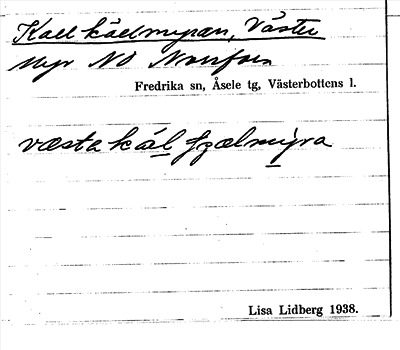 Kallkälmyran, Väster
Myr NO Norrfors
Fredrika sn, Åsele tg, Västerbottens l.
væsta kál fjælmýra
Lisa Lidberg 1938.